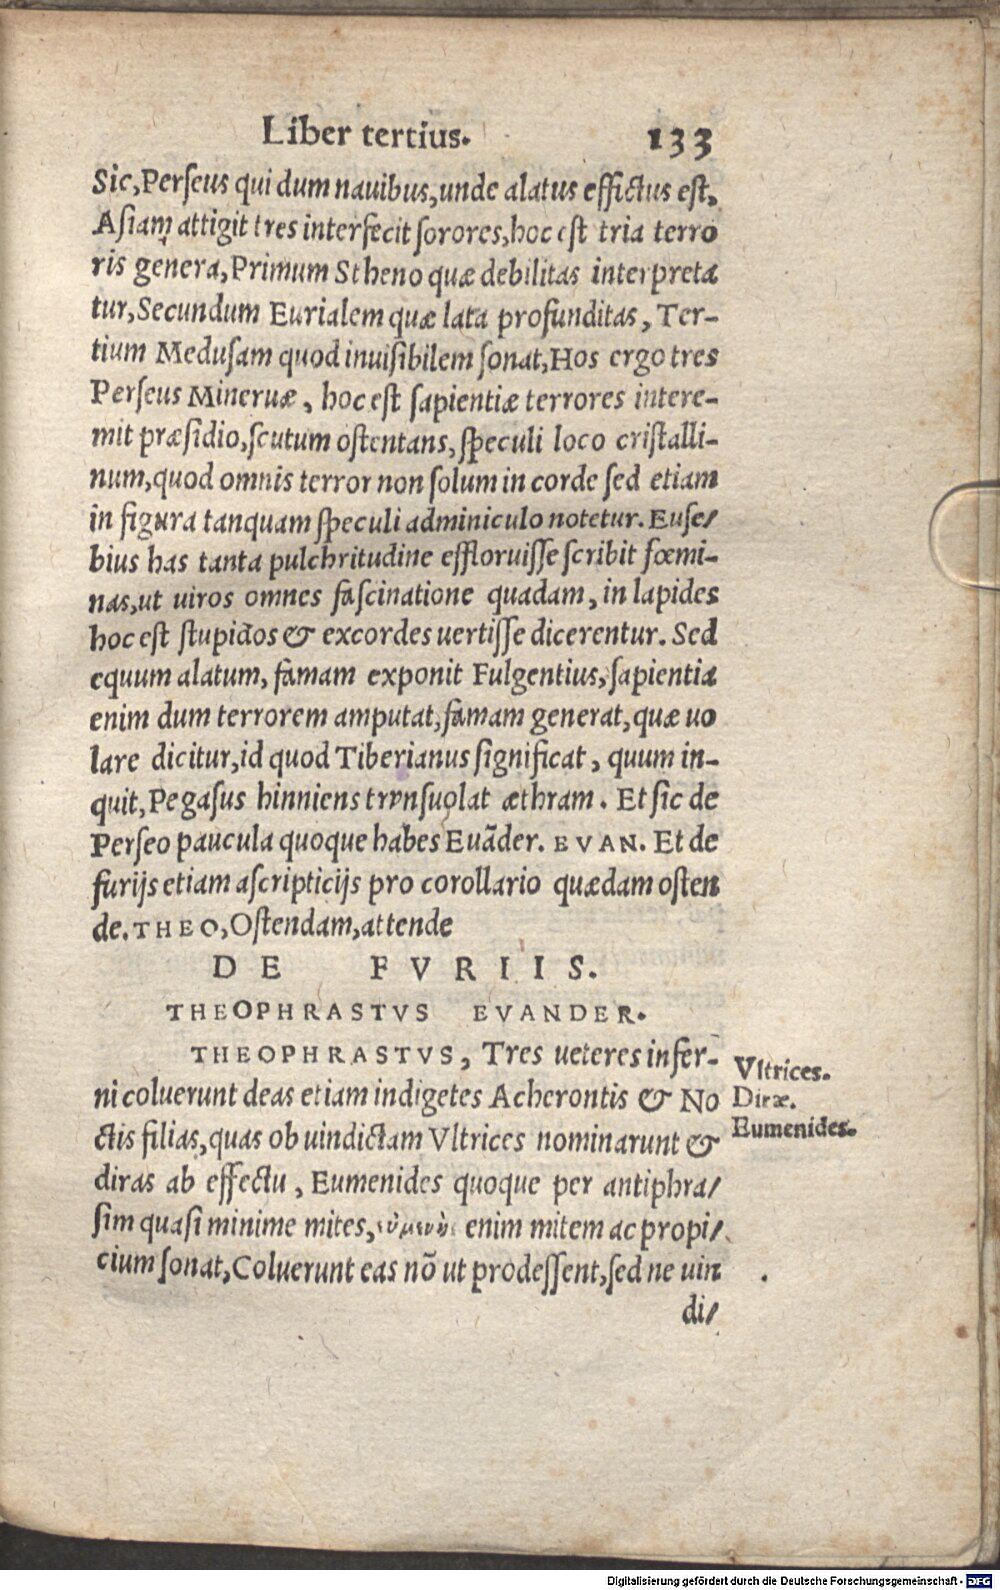 Liber tertius. 133
Sic,Perseus qui dum nauibus,unde alatus effictus est,
Asiam attigit tres interfecit sorores,hoc est tria terro
ris genera,Primum Stheno quæ debilitas interpreta
tur,Secundum Eurialem quæ lata profunditas, Ter-
tium Medusam quod inuisibilem sonat,Hos ergo tres
Perseus Mineruæ, hoc est sapientiæ terrores intere-
mit præsidio,scutum ostentans,speculi loco cristalli-
num,quod omnis terror non solum in corde sed etiam
in figura tanquam speculi adminiculo notetur. Euse/
bius has tanta pulchritudine effloruisse scribit fœmi-
nas,ut uiros omnes fascinatione quadam, in lapides
hoc est stupidos & excordes uertisse dicerentur. Sed
equum alatum, famam exponit Fulgentius,sapientia
enim dum terrorem amputat,famam generat,quæ uo
lare dicitur,id quod Tiberianus significat, quum in-
quit,Pegasus hinniens transuolat æthram. Et sic de
Perseo paucula quoque habes Euāder. EVAN. Et de
furijs etiam ascripticijs pro corollario quædam osten
de.THEO,Ostendam,attende
DE FVRIIS.
THEOPHRASTVS EVANDER.
THEOPHRASTVS, Tres ueteres infer-
ni coluerunt deas etiam indigetes Acherontis & No
ctis filias,quas ob uindictam Vltrices nominarunt &
diras ab effectu, Eumenides quoque per antiphra/
sim quasi minime mites, enim mitem ac propi/
cium sonat,Coluerunt eas nō ut prodessent,sed ne uin
di/
Vltrices.
Diræ.
Eumenides.
Digitalisierung gefördert durch die Deutsche Forschungsgemeinschaft - DFG